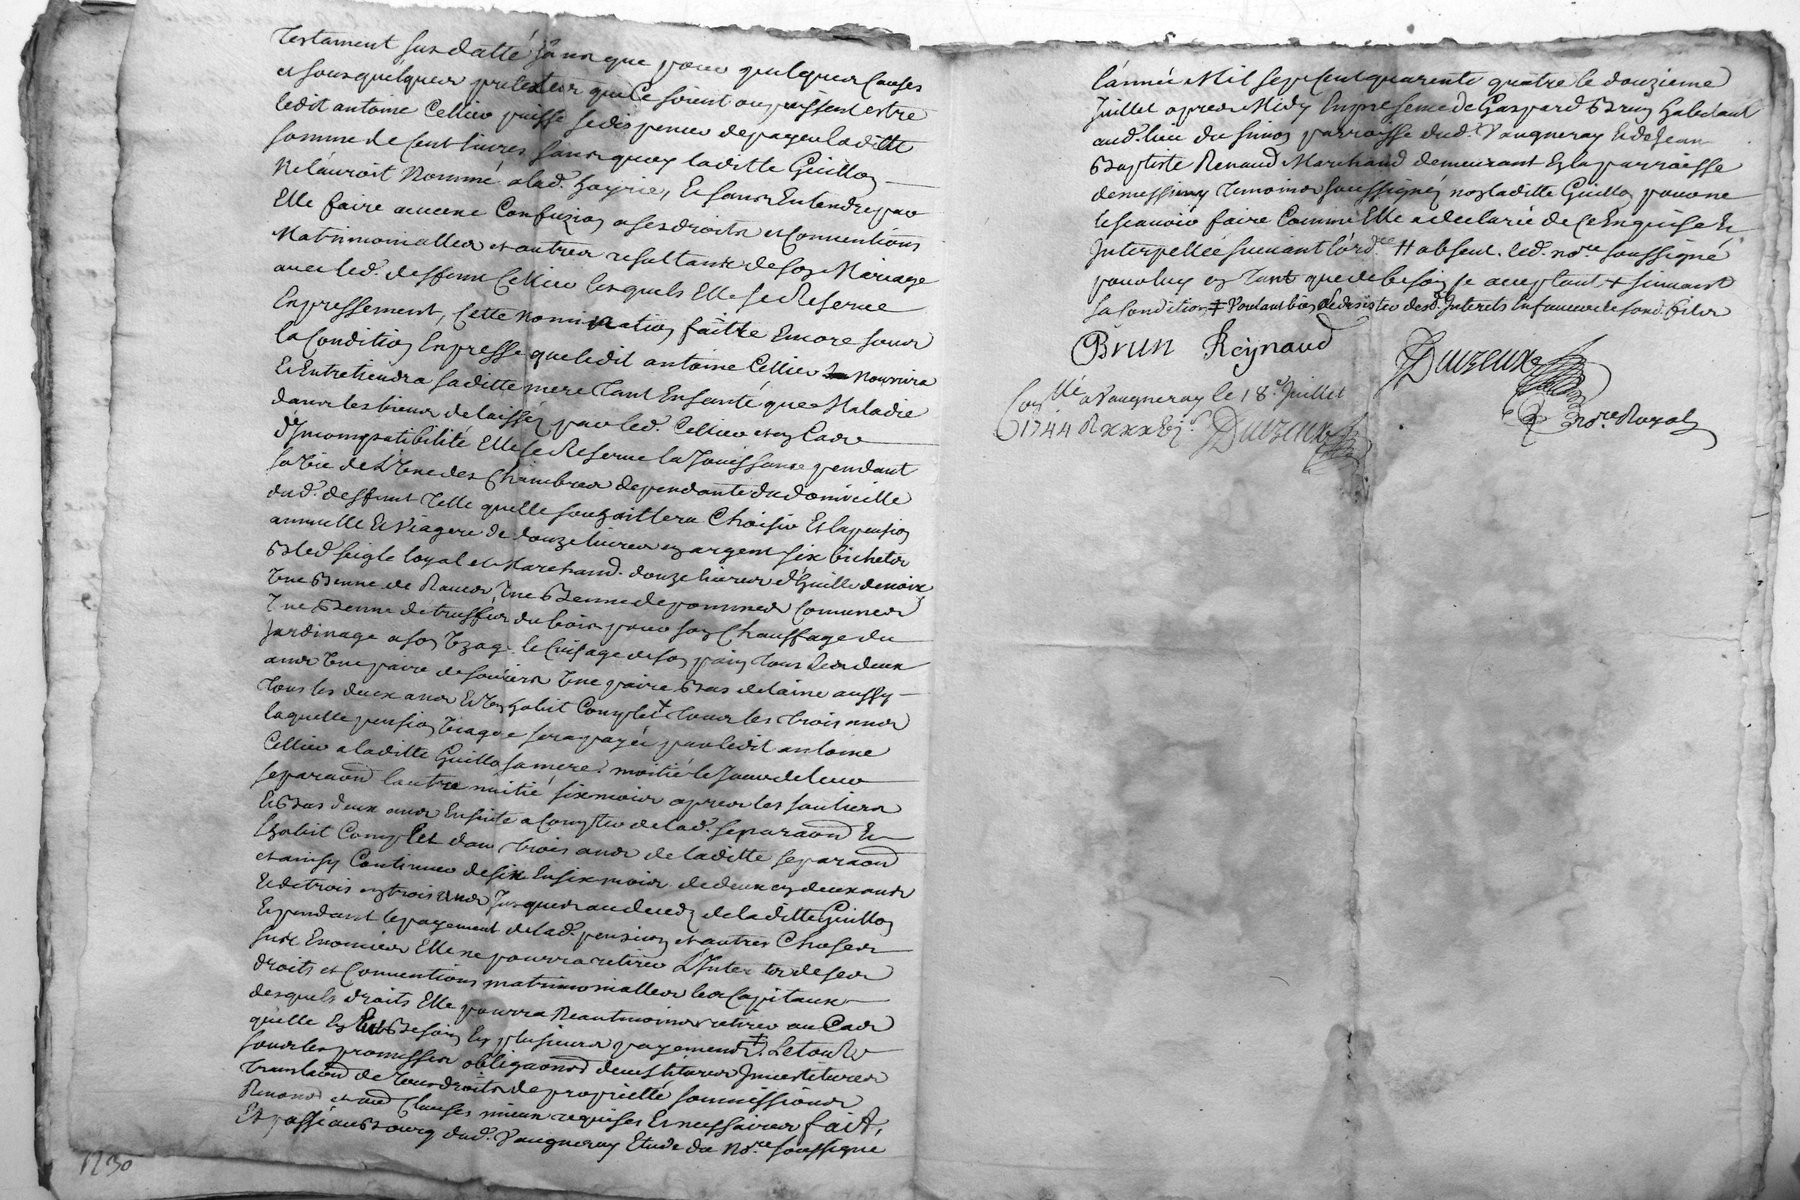 Testament susdatté sans que pour quelques causes
et sous quelques pretextes que ce soient ou puissent estre
ledit antoine Cellier puisse se dispenser de payer laditte
somme de Cent livres sans quoy laditte Guillon
ne l'auroit Nommé a lad. hoyrie, Et sans Entendre par
Elle faire aucune Confuzion a ses droits et Conventions
Matrimonialles et autres resultants de son Mariage
avec led. deffunt Cellier lesquels Elle se Reserve
Expressement, Cette nomination faitte Encore sous
la Condition Expresse que ledit antoine Cellier nourrira
Et Entretiendra saditte mere Tant En santé que Maladie
dans les biens delaissés par led. Cellier et en Cas
d'Incompatibilité Elle se Reserve la Jouissance pendant
sa vie de l'Une des Chambres dependante du domicille
dud. deffunt Telle quelle souhaittera Choisir Et la pension
annuelle Et Viagere de douze livres en argent six bichets
Bled seigle loyal et Marchand. douze livres d'huille de noix
Une Benne de Raves, Une Benne de pommes Comunes
Une Benne de truffes du bois pour son Chauffage du
Jardinage a son Uzage le Cuisage de son pain tous les deux
ans Une paire de souliers Une paire Bas de laine aussy
tous les deux ans Et Un habit Complet tous les trois ans
laquelle pension Viagere sera payée par ledit antoine
Cellier a laditte Guillon sa mere, moitié le Jour de leur
separaon l'autre moitié six mois apres les souliers
Et Bas deux ans Ensuite a Compter de lad. separaon Et
l'habit Complet dans trois ans de laditte separaon
et ainsy Continuer de six En six mois de deux en deux ans
Et de trois en trois ans Jusques au deceds de laditte Guillon
Et pendant le payement de lad. pension et autres Choses
sus Enoncées Elle ne pourra retirer l'Interets de ses
droits et Conventions matrimonialles les Capitaux
desquels droits Elle pourra Neantmoins retirer au Cas
quelle En Eut Besoin En plusieurs payemens ‡. Le tout
sous les promesses obligaons devestitures Investitures
translaon de tous droits de proprieté soumissions
Renons et aud Clauses mieux requises Et necessaires fait,
Et passé au Bourg dud. Vaugneray Etude du Nore. soussigné
1230
l'année Mil sept Cent quarente quatre le douzieme
Juillet apres Midy En presence de Gaspard Brun habitant
aud. lieu du simon parroisse dud. Vaugneray Et de Jean
Baptiste Renaud Marchand demeurant En la parroisse
de messimy temoins soussignés non laditte Guillon pour ne
le scavoir faire Comme Elle a declarée de Ce Enquise Et
Interpellée suivant l'ordce. # absent. led. nore. soussigné
pour luy en tant que de besoin se acceptant + suivant
sa Condition ‡ voulant bien se desister desd. Interets En faveur de sond. fils
Brun Reynaud Duizeux
nore. Royal
Conllé a Vaugneray le 18e. Juillet
1744 R Duizeux